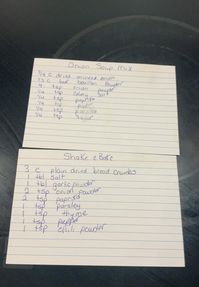 Onion Soup Mix
1/4 c dried minced onion
tsp onion powder
1/4 tsp celery
1/4 tsp paprika
1/4 tsp
1/4 tsp
1/4 tsp sugar
Shake & Bake
3 c plain dried bread crumbs
1 tbl salt
1 tbl garlic powder
2 tsp onion powder
2 tsp paprika
1 tsp parsley
1 tsp thyme
1 tsp pepper
1 tsp chili powder